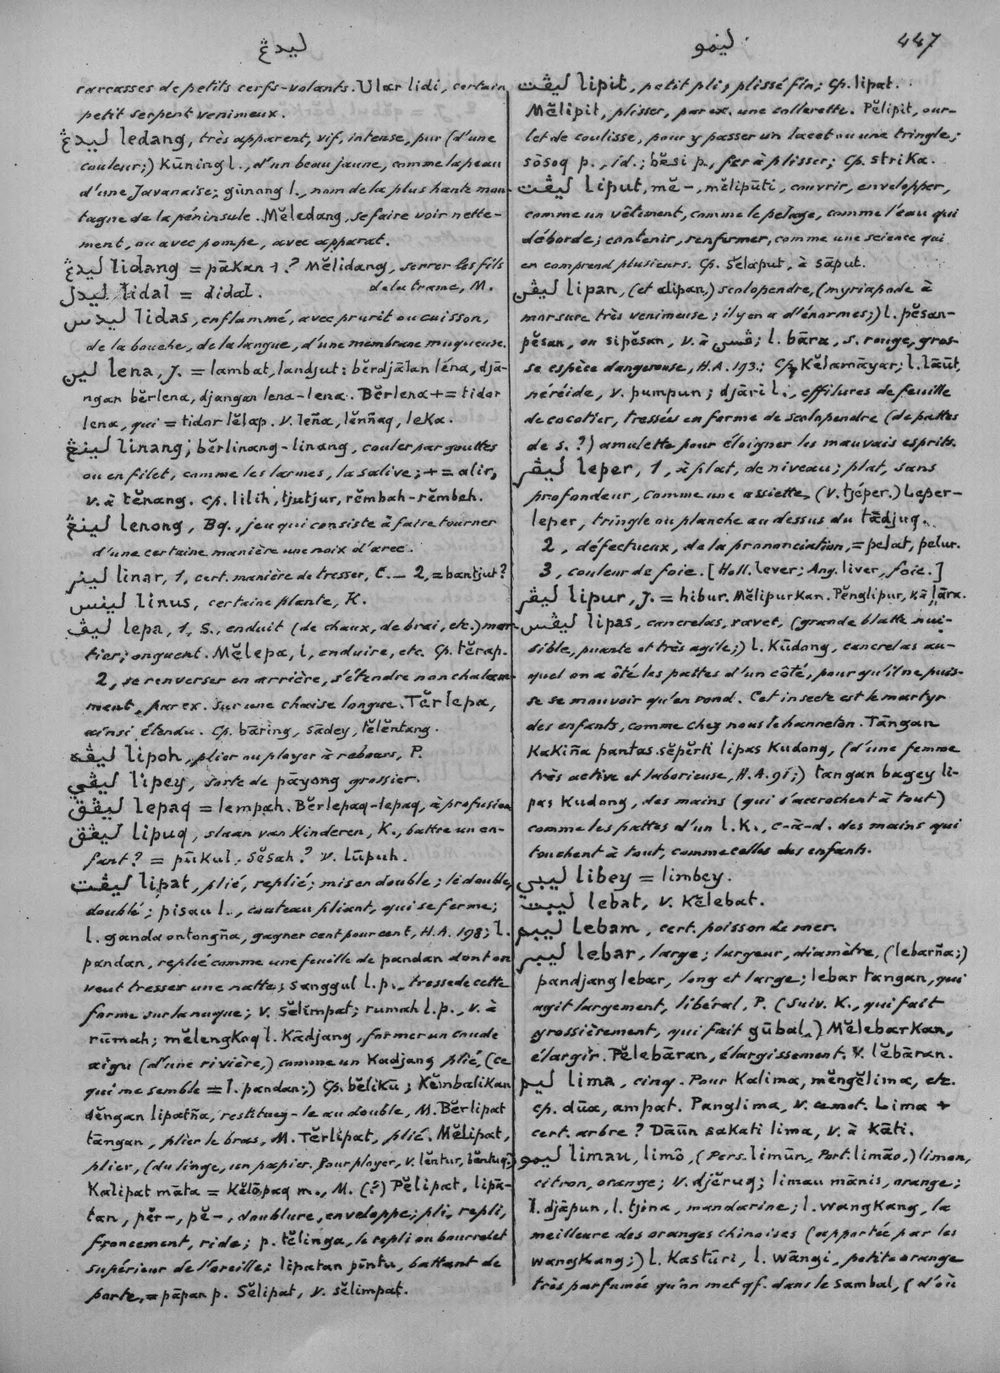 ليدڠ
ليمو
447
carcasses de petits cerfs-volants. Ular lidi, certain
petit serpent venimeux.
ليدڠ ledang, très apparent, vif, intense, pur (d'une
couleur;) Kūning l., d'un beau jaune, comme la peau
d'une Javanaise; gūnong l., nom de la plus haute mon-
tagne de la péninsule. Mĕledang, se faire voir nette-
ment, ou avec pompe, avec apparat.
ليدڠ lidang = pāKan 1? Mĕlidang, serrer les fils
de la trame, M.
ليدل lidal = didal.
ليدس lidas, enflammé, avec prurit ou cuisson,
de la bouche, de la langue, d'une membrane muqueuse.
لين lena, J. = lambat, landjut: bĕrdjālan léna, djā-
ngan bĕrlena, djangan lena-lena. Bĕrlena + = tidor
lena, qui = tidor lĕlap. V. leña, lĕnñag, leKa.
لينڠ linang; bĕrlinang-linang, couler par gouttes
ou en filet, comme les larmes, la salive; + = alir,
V. à tĕnang. Cp. lilih, tjutjur, rĕmbah-rĕmbeh.
لينڠ lenong, Bq., jeu qui consiste à faire tourner
d'une certaine manière une noix d'arec.
لينر linar, 1, cert. manière de tresser, C. — 2, = bantjut?
لينس linus, certaine plante, K.
ليڤ lepa, 1, S., enduit (de chaux, de brai, etc.) mor-
tier; onguent. Mĕlepa, l, enduire, etc. Cp. tĕrap.
2, se renverser en arrière, s'étendre nonchalam-
ment, par ex. sur une chaise longue. Tĕrlepa,
ainsi étendu. Cp. bāring, sādey, tĕlĕntang.
ليڤه lipoh, plier ou ployer à rebours, P.
ليڤي lipey, sorte de pāyong grossier.
ليڤق lepaq = lempah. Bĕrlepaq-lepaq, à profusion
ليڤق lipuq, slaan van Kinderen, K., battre un en-
fant? = pūkul, sĕsah? V. lūpuh.
ليڤت lipat, plié, replié; mis en double; le double,
doublé; pisau l., couteau pliant, qui se ferme;
l. ganda ontongña, gagner cent pour cent, H.A. 198; l.
pandan, replié comme une feuille de pandan dont on
veut tresser une natte; sanggul l.p., tresse de cette
forme sur la nuque; V. Sĕlimpat; rumah l.p., V. à
rūmah; mĕlengKoq l. Kādjang, former un coude
aigu (d'une rivière,) comme un Kadjang plié, (ce
qui me semble = l. pandan;) Cp. bĕliKu; KĕmbaliKan
dĕngan lipatña, restituez-le au double, M. Bĕrlipat
tāngan, plier le bras, M. Tĕrlipat, plié. Mĕlipat,
plier, (du linge, un papier. Pour ployer, V. lĕntur, bĕntuq;)
Kalipat māta = Kĕlōpaq m., M. (?) Pĕlipat, lipā-
tan, pĕr-, pĕ-, doublure, enveloppe; pli, repli,
froncement, ride; p. tĕlinga, le repli ou bourrelet
supérieur de l'oreille; lipatan pīntu, battant de
porte, = pāpan p. Sĕlipat, V. sĕlimpat.
ليڤت lipit, petit pli, plissé fin; Cp. lipat.
Mĕlipit, plisser, par ex. une collerette. Pĕlipit, our-
let de coulisse, pour y passer un lacet ou une tringle;
sōsoq p., id.; bĕsi p., fer à plisser; Cp. striKa.
ليڤت liput, mĕ-, mĕlipūti, couvrir, envelopper,
comme un vêtement, comme le pelage, comme l'eau qui
déborde; contenir, renfermer, comme une science qui
en comprend plusieurs. Cp. Sĕlaput, à sāput.
ليڤن lipan, (et alipan,) scolopendre, (myriapode à
morsure très venimeuse; il y en a d'énormes;) l. pĕsan-
pĕsan, ou sipĕsan, V. à ڤسن; l. bāra, s. rouge, gros-
se espèce dangereuse, H.A. 193.; Cp. Kĕlamāyar; l. lāūt,
néréide, V. pumpun; djāri l., effilures de feuille
de cocotier, tressés en forme de scolopendre (de pattes
de s.?) amulette pour éloigner les mauvais esprits.
ليڤر leper, 1, à plat, de niveau; plat, sans
profondeur, comme une assiette, (V. tjéper.) Leper-
leper, tringle ou planche au dessus du tādjuq.
2, défectueux, de la prononciation, = pelat, pelur.
3, couleur de foie. [Holl. lever; Ang. liver, foie.]
ليڤر lipur, J. = hibur. MĕlipurKan. Pĕnglipur, Kā lāra.
ليڤس lipas, cancrelas, ravet, (grande blatte nui-
sible, puante et très agile;) l. Kūdong, cancrelas au-
quel on a ôté les pattes d'un côté, pour qu'il ne puis-
se se mouvoir qu'en rond. Cet insecte est le martyr
des enfants, comme chez nous le hanneton. Tāngan
KaKiña pantas sĕpĕrti lipas Kudong, (d'une femme
très active et laborieuse, H.A. 91;) tangan bagey li-
pas Kudong, des mains (qui s'accrochent à tout)
comme les pattes d'un l. K., c-à-d. des mains qui
touchent à tout, comme celles des enfants.
ليبي libey = limbey.
ليبت lebat, V. Kĕlebat.
ليبم lebam, cert. poisson de mer.
ليبر lebar, large; largeur, diamètre, (lebarña;)
pandjang lebar, long et large; lebar tangan, qui
agit largement, libéral, P. (Suiv. K., qui fait
grossièrement, qui fait gūbal.) MĕlebarKan,
élargir. Pĕlebāran, élargissement. V. lĕbāran.
ليم lima, cinq. Pour Kalima, mĕngĕlima, etc.
cp. dūa, ampat. Panglima, V. ce mot. Lima +
cert. arbre? Dāūn saKati lima, V. à Kāti.
ليمو limau, limō, (Pers. limūn, Port. limāo,) limon,
citron, orange; V. djĕruq; limau mānis, orange;
l. djāpun, l. tjina, mandarine; l. wangKang, la
meilleure des oranges chinoises (apportée par les
wangKang;) l. Kastūri, l. wāngi, petite orange
très parfumée qu'on met qf. dans le Sambal, (d'où